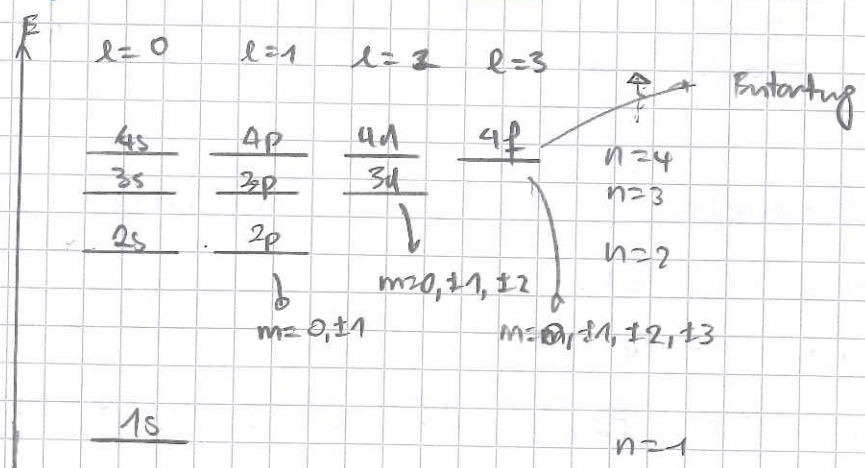 E
l=0 l=1 l=2 l=3
Entartung
4s 4p 4d 4f n=4
3s 3p 3d n=3
2s 2p n=2
m=0,±1,±2
m=0,±1 m=0,±1,±2,±3
1s n=1